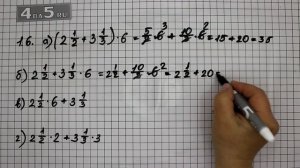 4ПО5.РУ
16. а) (2 1/2 + 3 1/3) · 6 = 5/2 · 6 3 + 10/3 · 6 2 = 15 + 20 = 35
б) 2 1/2 + 3 1/3 · 6 = 2 1/2 + 10/3 · 6 2 = 2 1/2 + 20
в) 2 1/2 · 6 + 3 1/3
г) 2 1/2 · 2 + 3 1/3 · 3